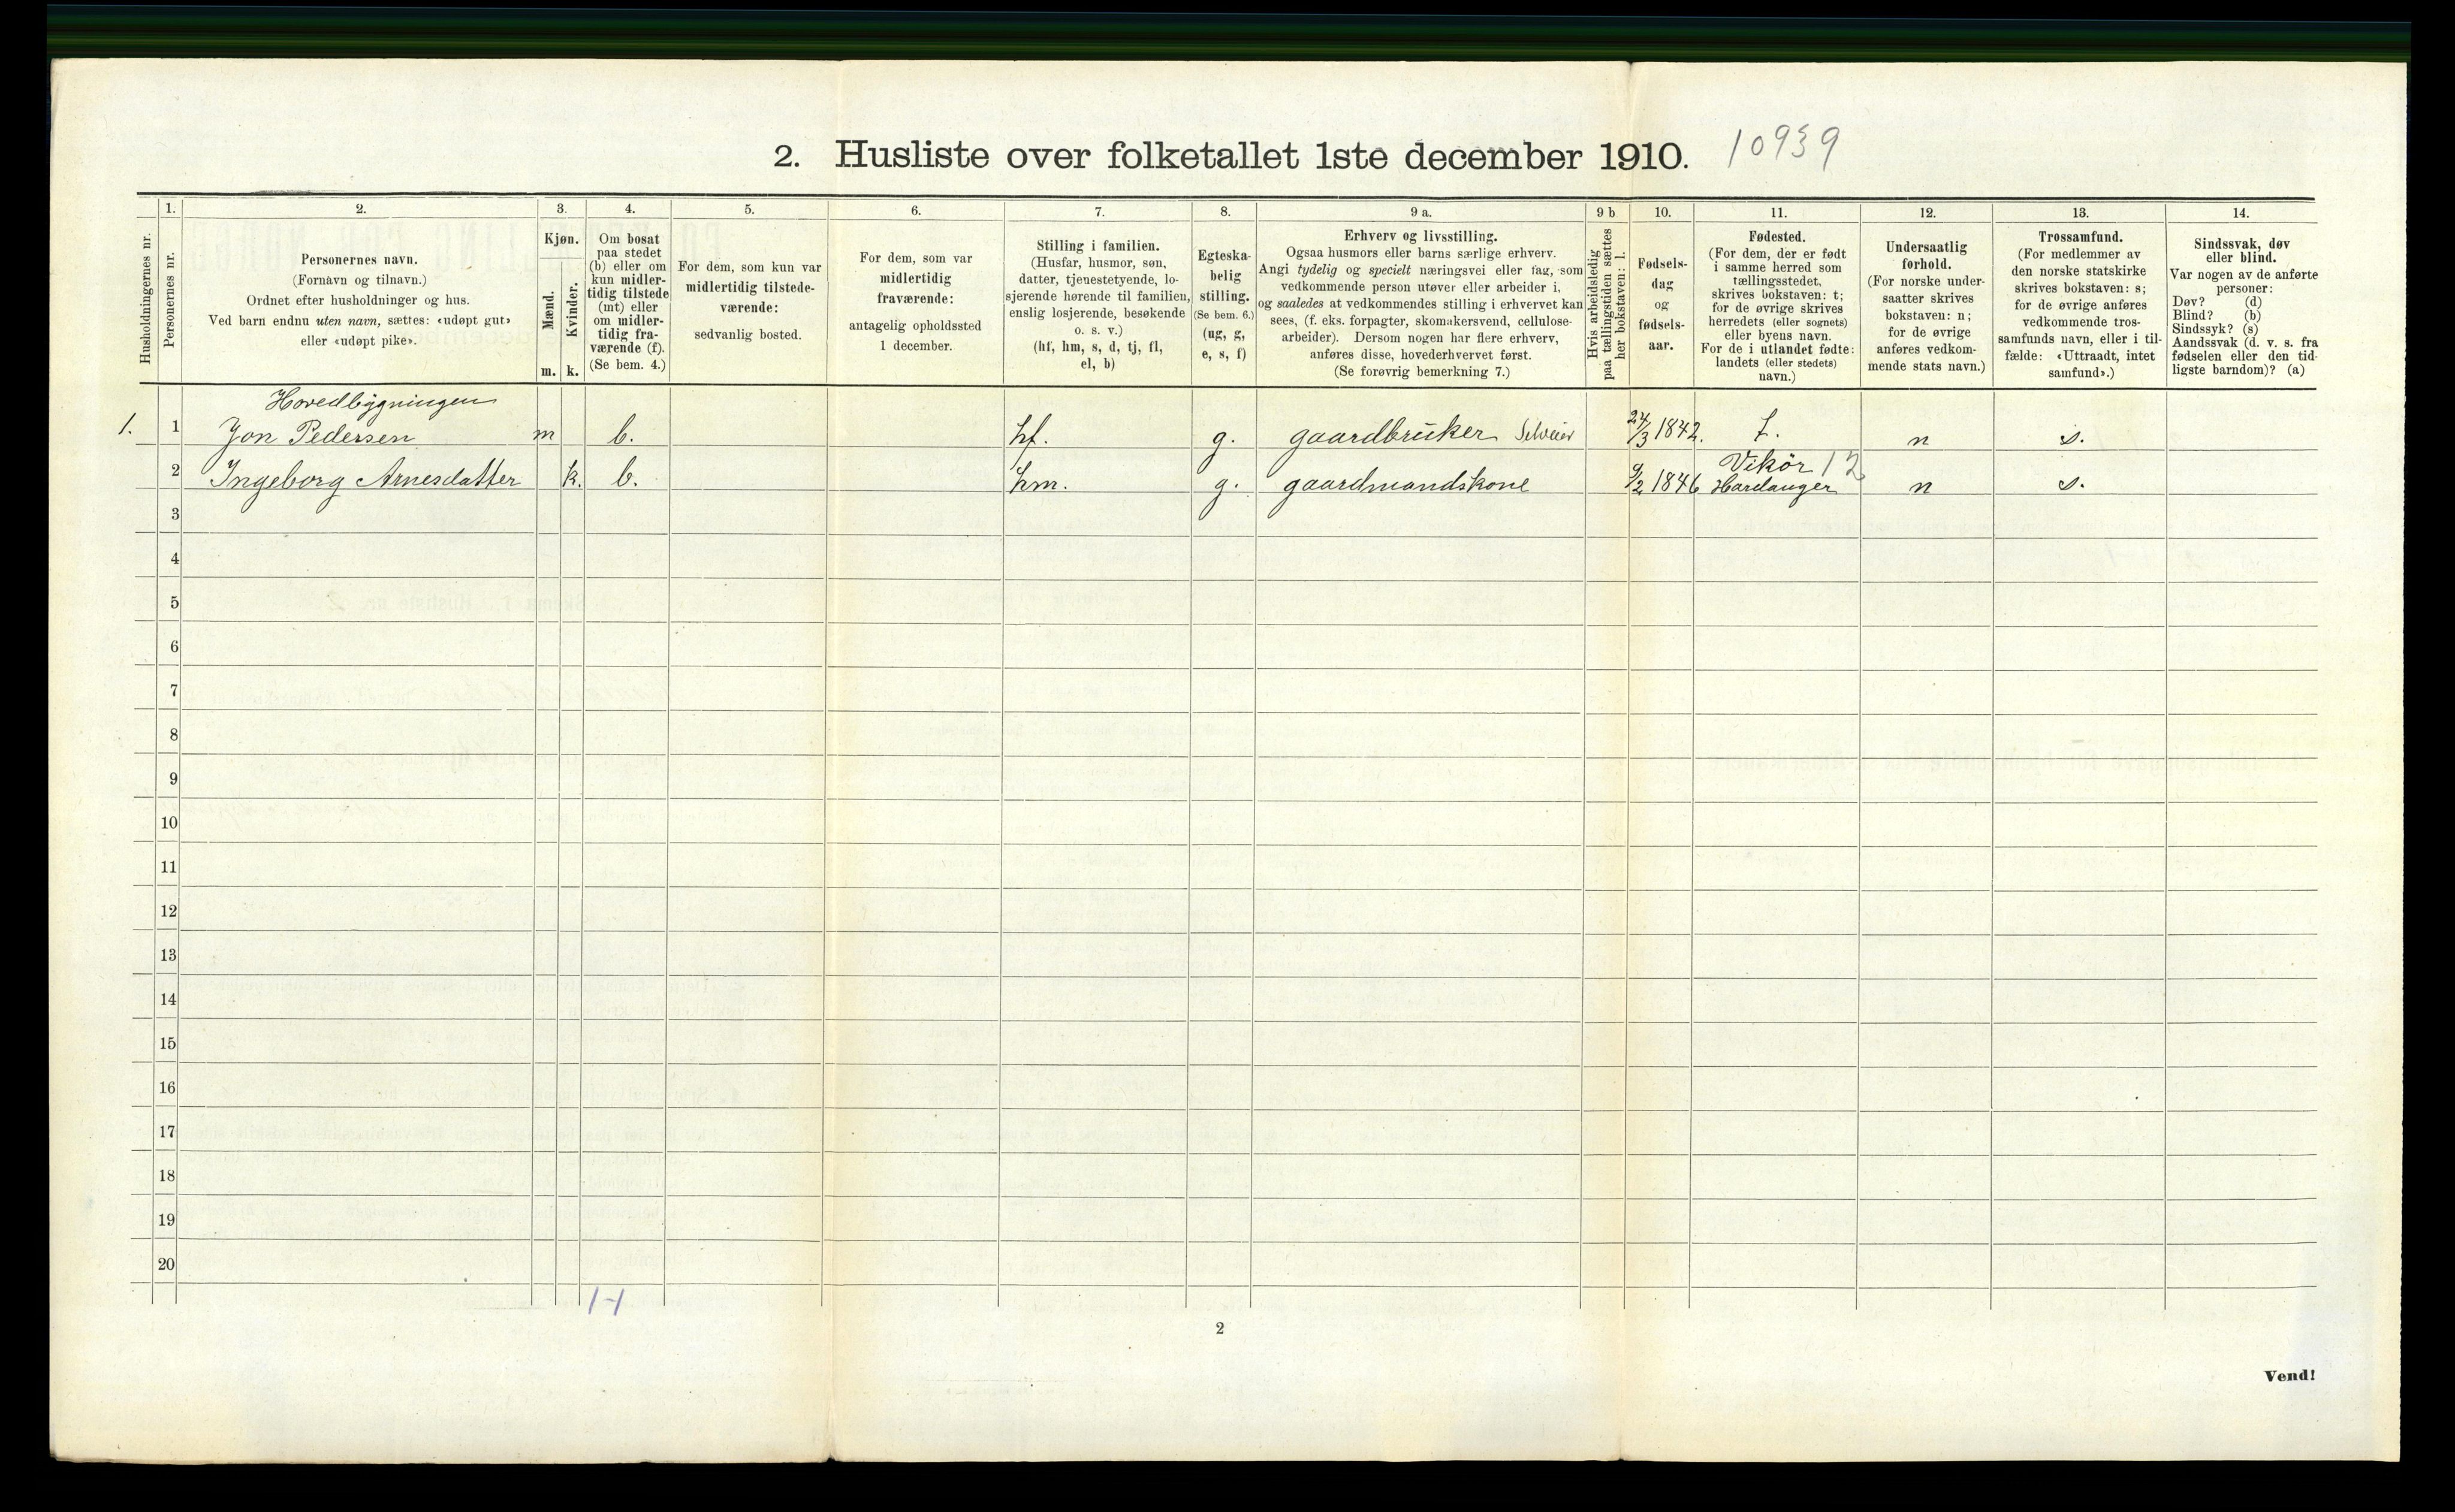 2. Husliste over folketallet 1ste december 1910. 10939
1. 2. 3. 4. 5. 6. 7. 8. 9 a. 9 b 10. 11. 12. 13. 14.
Husholdningernes nr.
Personernes nr.
Personernes navn.
(Fornavn og tilnavn.)
Ordnet efter husholdninger og hus.
Ved barn endnu uten navn, sættes: «udøpt gut»
eller «udøpt pike».
Kjøn.
Mænd.
Kvinder.
m. k.
Om bosat
paa stedet
(b) eller om
kun midler-
tidig tilstede
(mt) eller
om midler-
tidig fra-
værende (f).
(Se bem. 4.)
For dem, som kun var
midlertidig tilstede-
værende:
sedvanlig bosted.
For dem, som var
midlertidig
fraværende:
antagelig opholdssted
1 december.
Stilling i familien.
(Husfar, husmor, søn,
datter, tjenestetyende, lo-
sjerende hørende til familien,
enslig losjerende, besøkende
o. s. v.)
(hf, hm, s, d, tj, fl,
el, b)
Egteska-
belig
stilling.
(Se bem. 6.)
(ug, g,
e, s, f)
Erhverv og livsstilling.
Ogsaa husmors eller barns særlige erhverv.
Angi tydelig og specielt næringsvei eller fag, som
vedkommende person utøver eller arbeider i,
og saaledes at vedkommendes stilling i erhvervet kan
sees, (f. eks. forpagter, skomakersvend, cellulose-
arbeider). Dersom nogen har flere erhverv,
anføres disse, hovederhvervet først.
(Se forøvrig bemerkning 7.)
Hvis arbeidsledig
paa tællingstiden sættes
her bokstaven: l.
Fødsels-
dag
og
fødsels-
aar.
Fødested.
(For dem, der er født
i samme herred som
tællingsstedet,
skrives bokstaven: t;
for de øvrige skrives
herredets (eller sognets)
eller byens navn.
For de i utlandet fødte:
landets (eller stedets)
navn.)
Undersaatlig
forhold.
(For norske under-
saatter skrives
bokstaven: n;
for de øvrige
anføres vedkom-
mende stats navn.)
Trossamfund.
(For medlemmer av
den norske statskirke
skrives bokstaven: s;
for de øvrige anføres
vedkommende tros-
samfunds navn, eller i til-
fælde: «Uttraadt, intet
samfund».)
Sindssvak, døv
eller blind.
Var nogen av de anførte
personer:
Døv? (d)
Blind? (b)
Sindssyk? (s)
Aandssvak (d. v. s. fra
fødselen eller den tid-
ligste barndom)? (a)
Hovedbygningen
1. 1 Jon Pedersen m b. hf. g. gaardbruker Selveier 24/3 1842. t. n s.
Vikör 12
2 Ingeborg Arnesdatter k. b. hm. g. gaardmandskone 9/2 1846 Hardanger n s.
3
4
5
6
7
8
9
10
11
12
13
14
15
16
17
18
19
20
1-1
2
Vend!